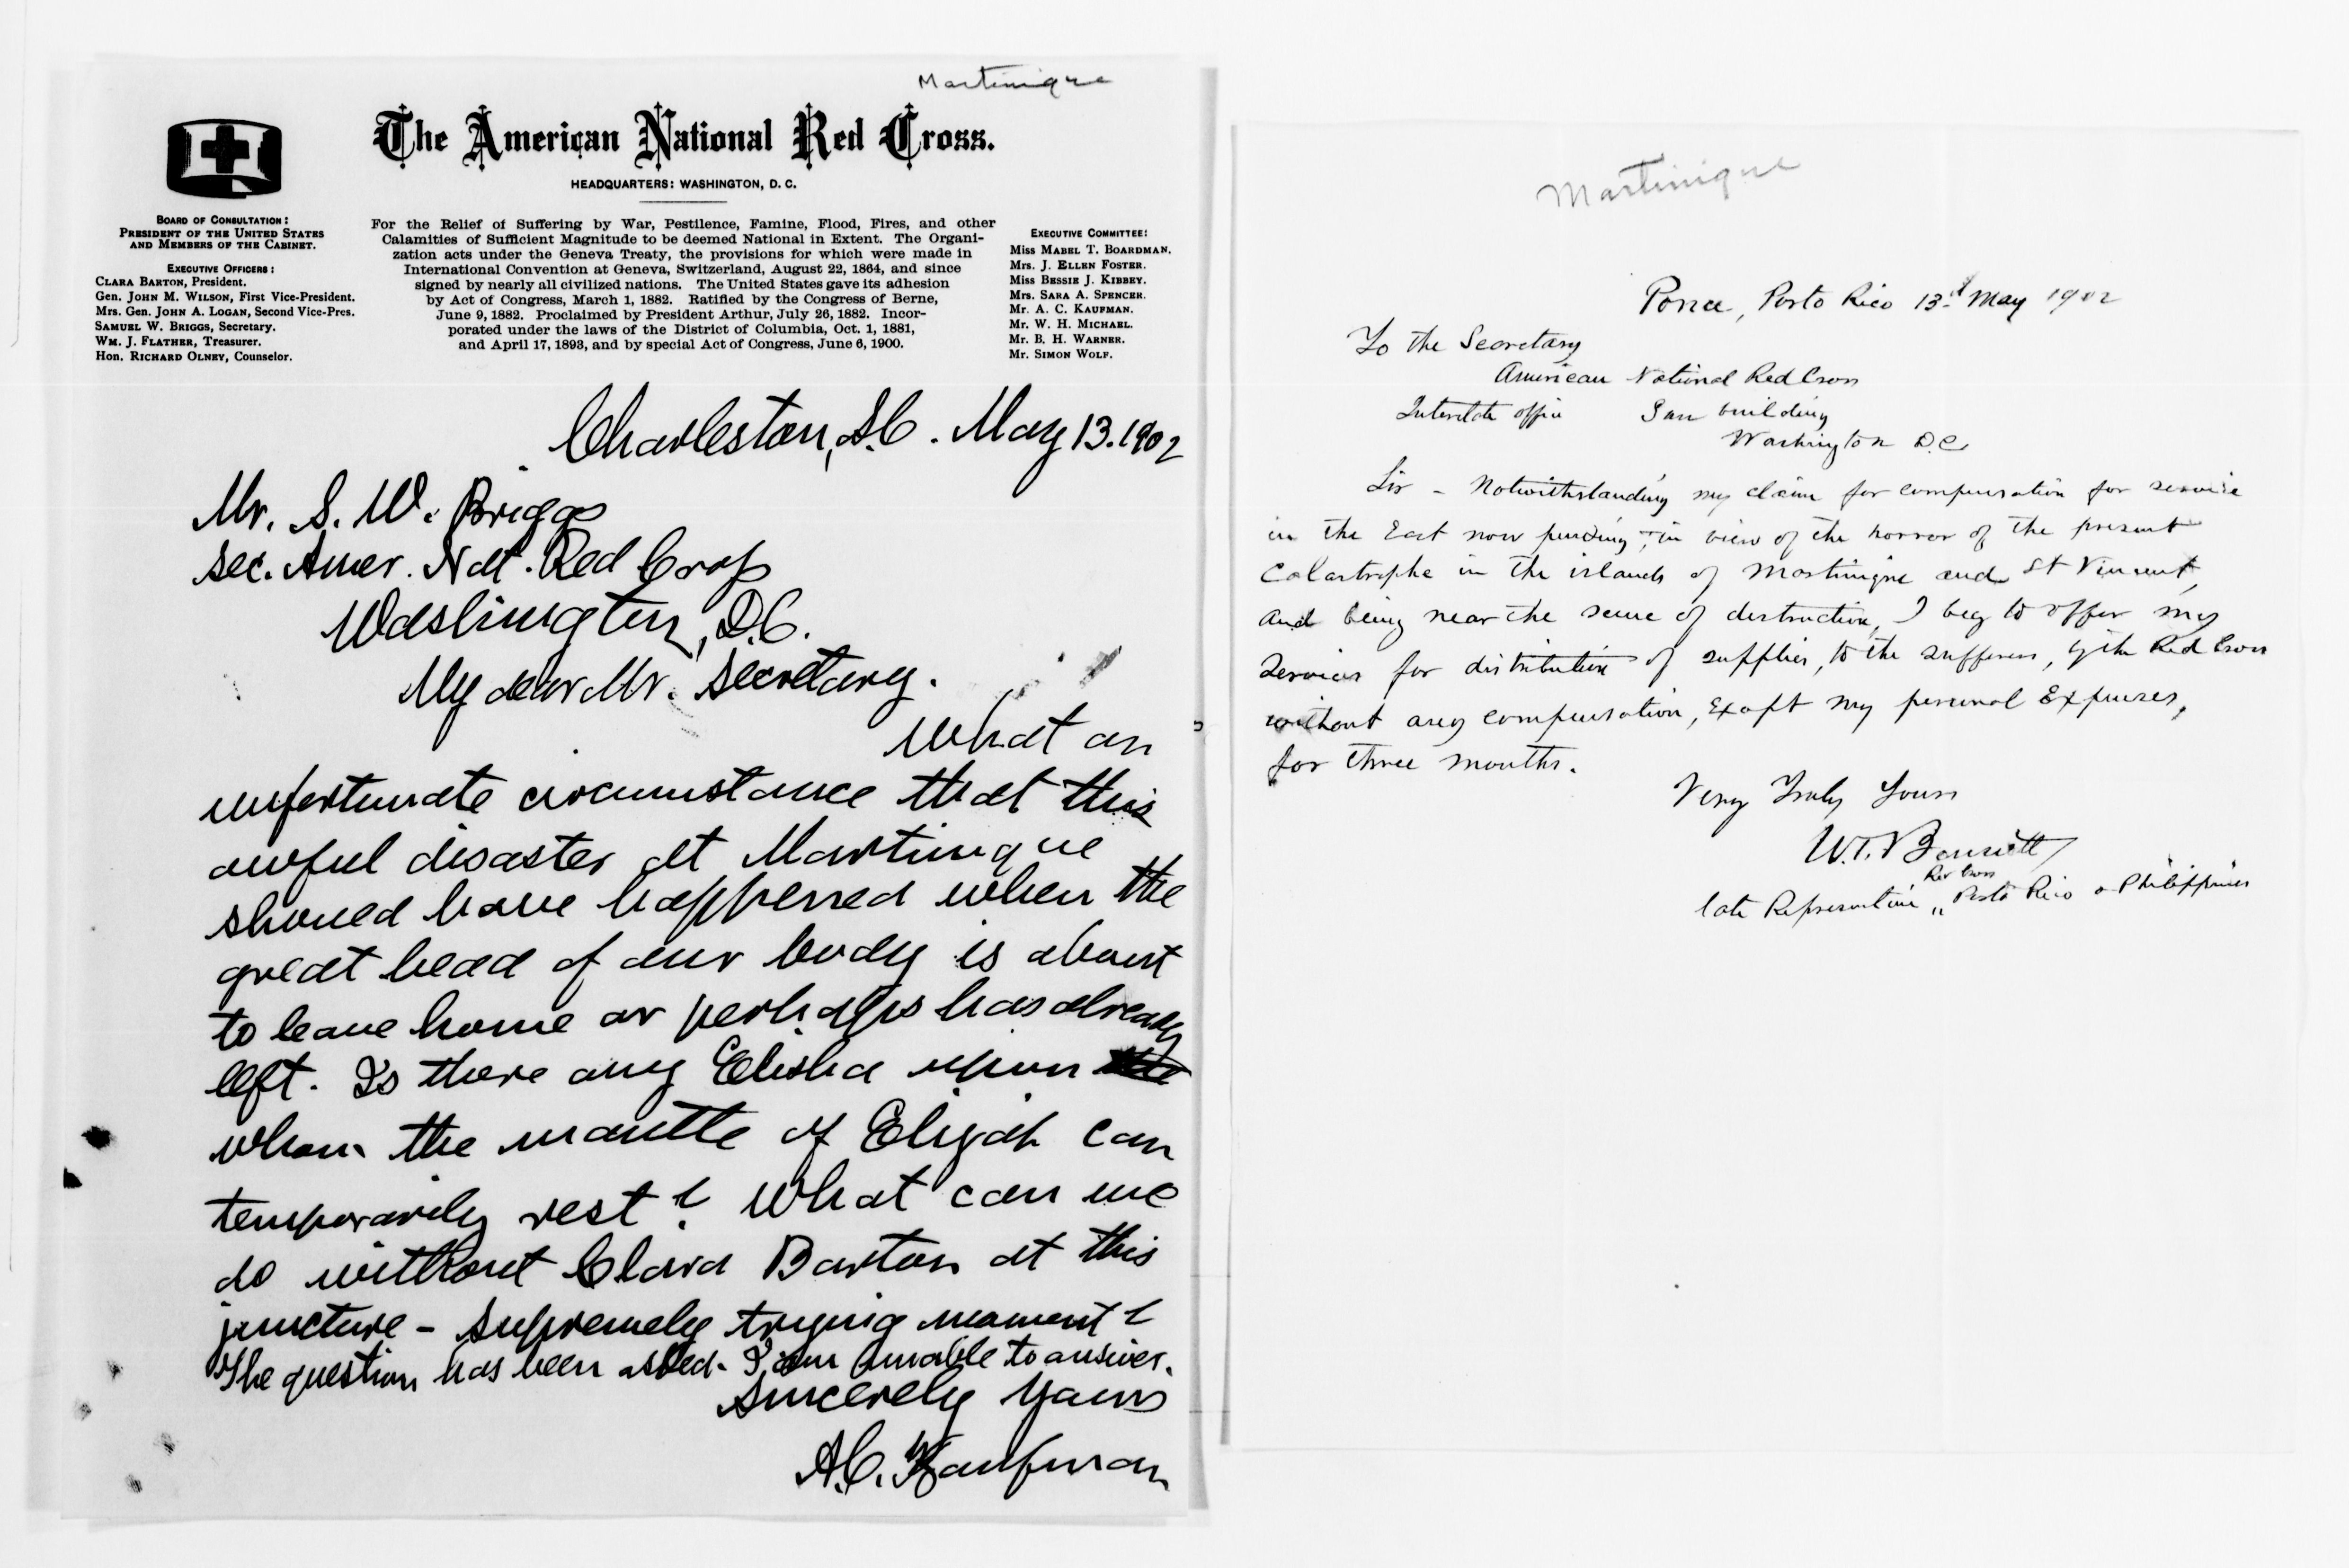 Martinique
The American National Red Cross.
HEADQUARTERS: WASHINGTON, D. C.
BOARD OF CONSULTATION:
PRESIDENT OF THE UNITED STATES
AND MEMBERS OF THE CABINET.
EXECUTIVE OFFICERS:
CLARA BARTON, President.
Gen. JOHN M. WILSON, First Vice-President.
Mrs. Gen. JOHN A. LOGAN, Second Vice-Pres.
SAMUEL W. BRIGGS, Secretary.
WM. J. FLATHER, Treasurer.
Hon. RICHARD OLNEY, Counselor.
For the Relief of Suffering by War, Pestilence, Famine, Flood, Fires, and other
Calamities of Sufficient Magnitude to be deemed National in Extent. The Organi-
zation acts under the Geneva Treaty, the provisions for which were made in
International Convention at Geneva, Switzerland, August 22, 1864, and since
signed by nearly all civilized nations. The United States gave its adhesion
by Act of Congress, March 1, 1882. Ratified by the Congress of Berne,
June 9, 1882. Proclaimed by President Arthur, July 26, 1882. Incor-
porated under the laws of the District of Columbia, Oct. 1, 1881,
and April 17, 1893, and by special Act of Congress, June 6, 1900.
EXECUTIVE COMMITTEE:
Miss MABEL T. BOARDMAN.
Mrs. J. ELLEN FOSTER.
Miss BESSIE J. KIBBEY.
Mrs. SARA A. SPENCER.
Mr. A. C. KAUFMAN.
Mr. W. H. MICHAEL.
Mr. B. H. WARNER.
Mr. SIMON WOLF.
Charleston, S.C. May 13. 1902
Mr. S. W. Briggs
Sec. Amer. Nat. Red Cross
Washington, D.C.
My dear Mr. Secretary.
What an
unfortunate circumstance that this
awful disaster at Martinique
should have happened when the
great head of our body is about
to leave home or perhaps has already
left. Is there any Elisha upon
whom the mantle of Elijah can
temporarily rest? What can we
do without Clara Barton at this
juncture - supremely trying moment?
The question has been asked. I am unable to answer.
Sincerely Yours
A.C. Kaufman
Martinique
Ponce, Porto Rico 13th May 1902
To the Secretary
American National Red Cross
Interstate office Sun building
Washington D.C.
Sir - Notwithstanding my claim for compensation for service
in the East now pending, in view of the horror of the present
Catastrophe in the islands of Martinique and St Vincent,
and being near the scene of destruction, I beg to offer my
Services for distribution of supplies, to the sufferers, by the Red Cross
without any compensation, Except my personal Expenses,
for three months.
Very Truly Yours
W.T.
Red Cross
late Representative " Porto Rico & Philippines